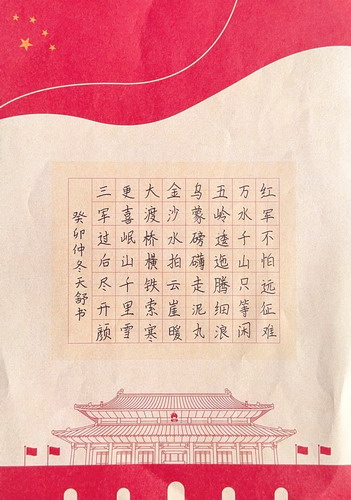 红军不怕远征难
万水千山只等闲
五岭逶迤腾细浪
乌蒙磅礴走泥丸
金沙水拍云崖暖
大渡桥横铁索寒
更喜岷山千里雪
三军过后尽开颜
癸卯仲冬天舒书